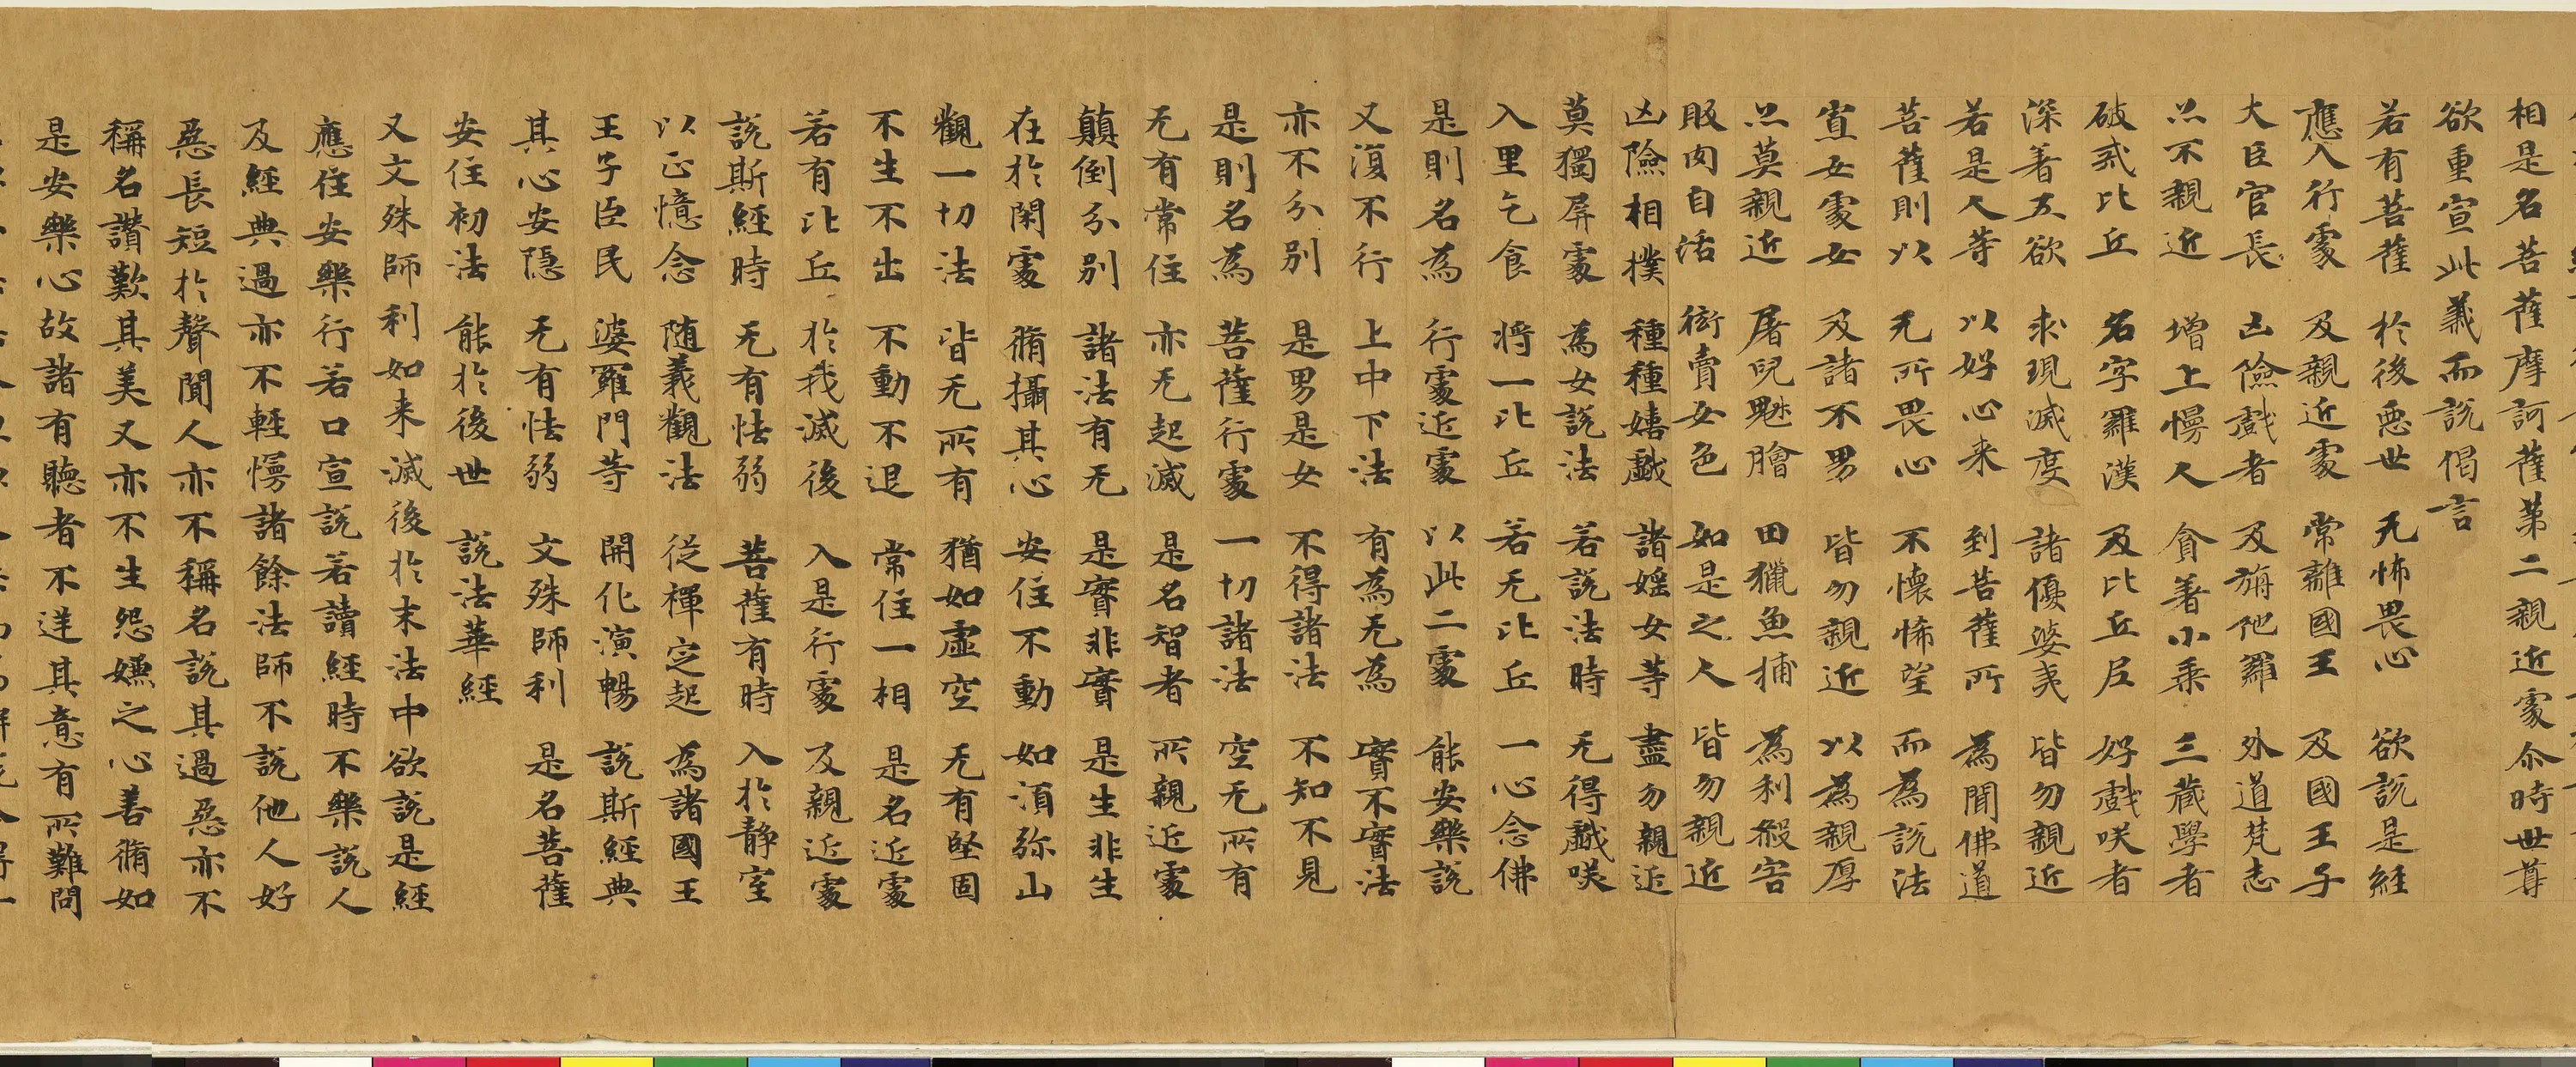 相是名菩薩摩訶薩第二親近處尒時世尊
欲重宣此義而說偈言
若有菩薩 於後惡世 无怖畏心 欲說是經
應入行處 及親近處 常離國王 及國王子
大臣官長 凶險戲者 及旃陁羅 外道梵志
亦不親近 增上慢人 貪著小乘 三藏學者
破戒比丘 名字羅漢 及比丘尼 好戲咲者
深著五欲 求現滅度 諸優婆夷 皆勿親近
若是人等 以好心来 到菩薩所 為聞佛道
菩薩則以 无所畏心 不懷悕望 而為說法
寡女處女 及諸不男 皆勿親近 以為親厚
亦莫親近 屠兒魁膾 田獵魚捕 為利殺害
販肉自活 衒賣女色 如是之人 皆勿親近
凶險相撲 種種嬉戲 諸婬女等 盡勿親近
莫獨屏處 為女說法 若說法時 无得戲咲
入里乞食 將一比丘 若无比丘 一心念佛
是則名為 行處近處 以此二處 能安樂說
又復不行 上中下法 有為无為 實不實法
亦不分別 是男是女 不得諸法 不知不見
是則名為 菩薩行處 一切諸法 空无所有
无有常住 亦无起滅 是名智者 所親近處
顛倒分別 諸法有无 是實非實 是生非生
在於閑處 脩攝其心 安住不動 如須弥山
觀一切法 皆无所有 猶如虛空 无有堅固
不生不出 不動不退 常住一相 是名近處
若有比丘 於我滅後 入是行處 及親近處
說斯經時 无有怯弱 菩薩有時 入於静室
以正憶念 随義觀法 従禪定起 為諸國王
王子臣民 婆羅門等 開化演暢 說斯經典
其心安隱 无有怯弱 文殊師利 是名菩薩
安住初法 能於後世 說法華經
又文殊師利如来滅後於末法中欲說是經
應住安樂行若口宣說若讀經時不樂說人
及經典過亦不輕慢諸餘法師不說他人好
惡長短於聲聞人亦不稱名說其過惡亦不
稱名讚歎其美又亦不生怨嫌之心善脩如
是安樂心故諸有聽者不逆其意有所難問